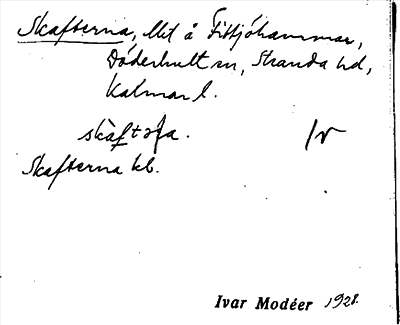 Skafterna, llit å Fittjöhammar,
Döderhult sn, Stranda hd,
Kalmar l.
skàftəɳa. IV
Skafterna kb.
Ivar Modéer 1928.